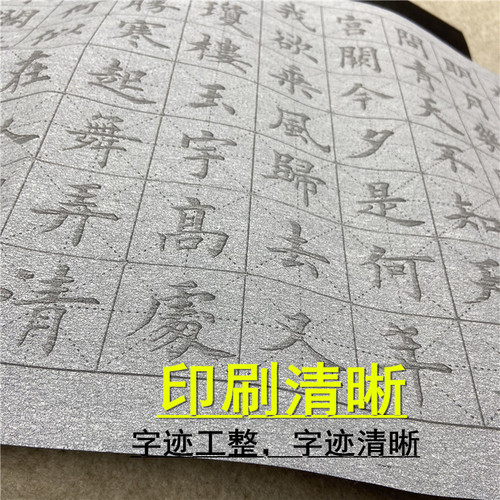 明月幾
問青天不知
宮闕今夕是何年
我欲乘風歸去又
瓊樓玉宇高處
勝寒起舞弄清
何似在
印刷清晰
字迹工整,字迹清晰